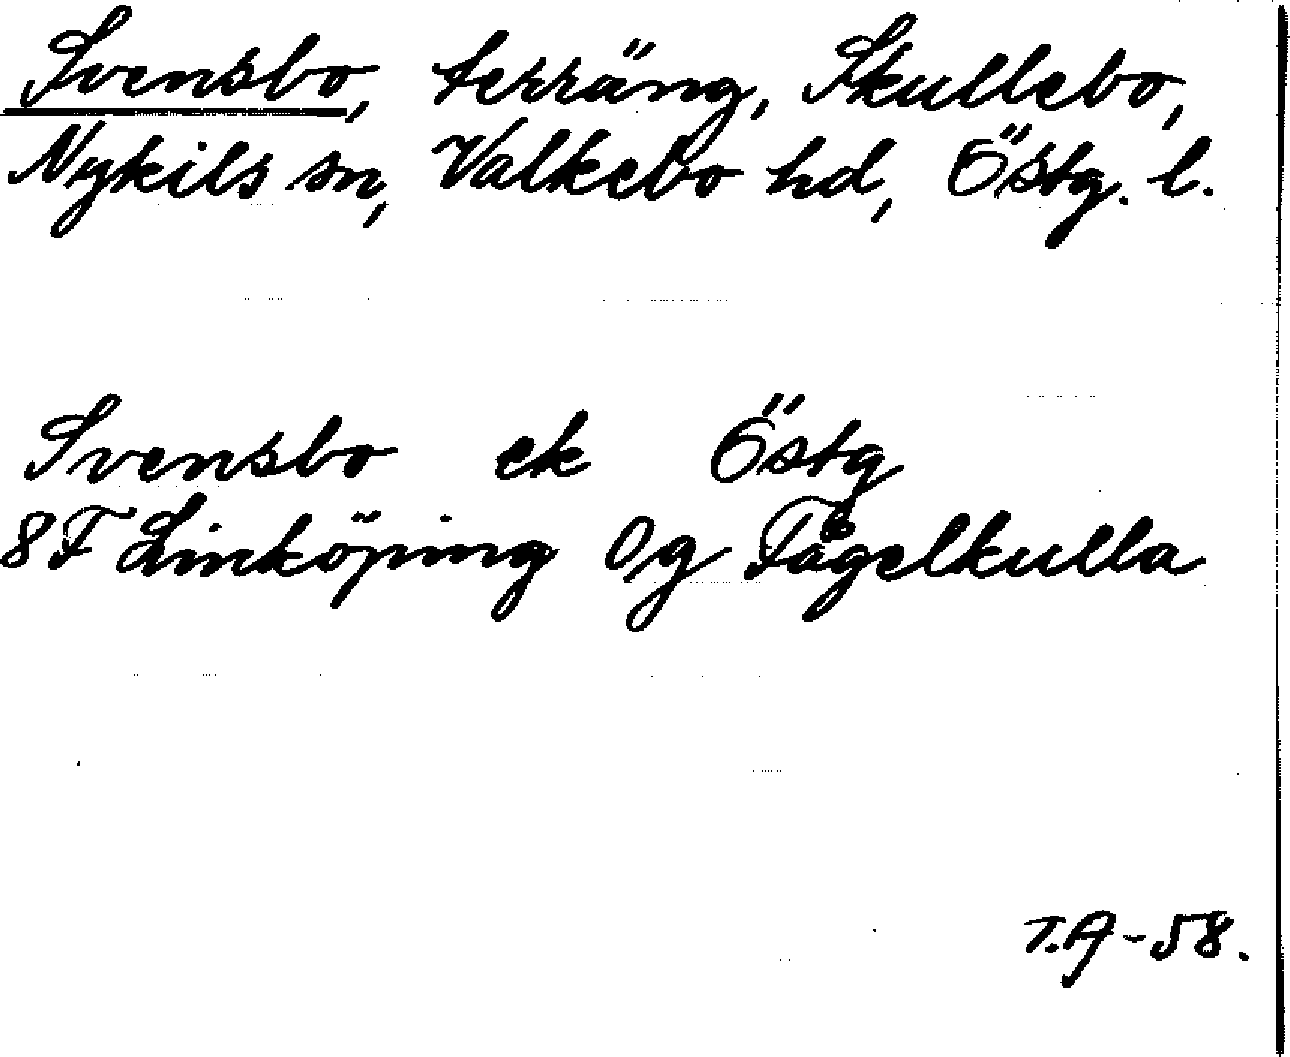 Svensbo, terräng, Skullebo,
Nykils sn, Valkebo hd, Östg. l.
Svensbo ek Östg
8F Linköping Og Fågelkulla
T.A-58.